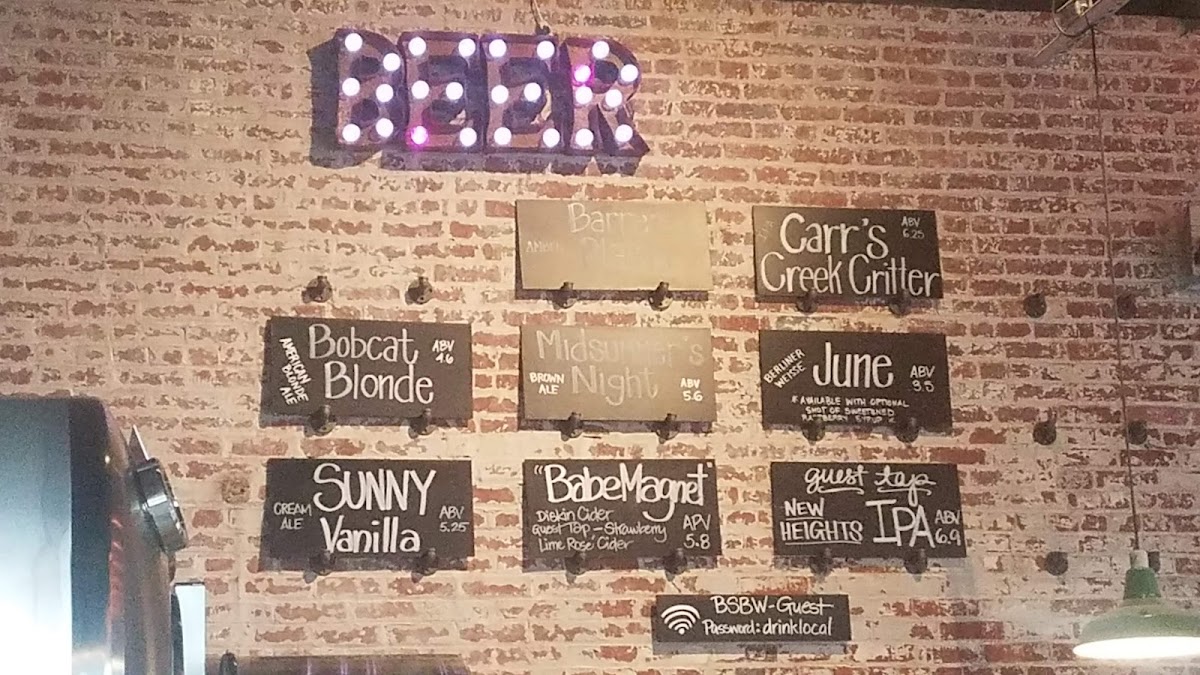 BEER
Carr's
Creek Critter
ABV
6.25
Bobcat
Blonde
AMERICAN
BLONDE
ALE
ABV
4.6
Midsummer's
Night
BROWN
ALE
ABV
5.6
BERLINER
WEISSE
June
ABV
3.5
AVAILABLE WITH OPTIONAL
SHOT OF SWEETENED
RASPBERRY SYRUP
CREAM
ALE
SUNNY
Vanilla
ABV
5.25
"BabeMagnet"
Diskin Cider
Guest Tap - Strawberry
Lime Rosé Cider
APV
5.8
guest tap
NEW
HEIGHTS
IPA
ABV
6.9
BSBW-Guest
Password: drinklocal